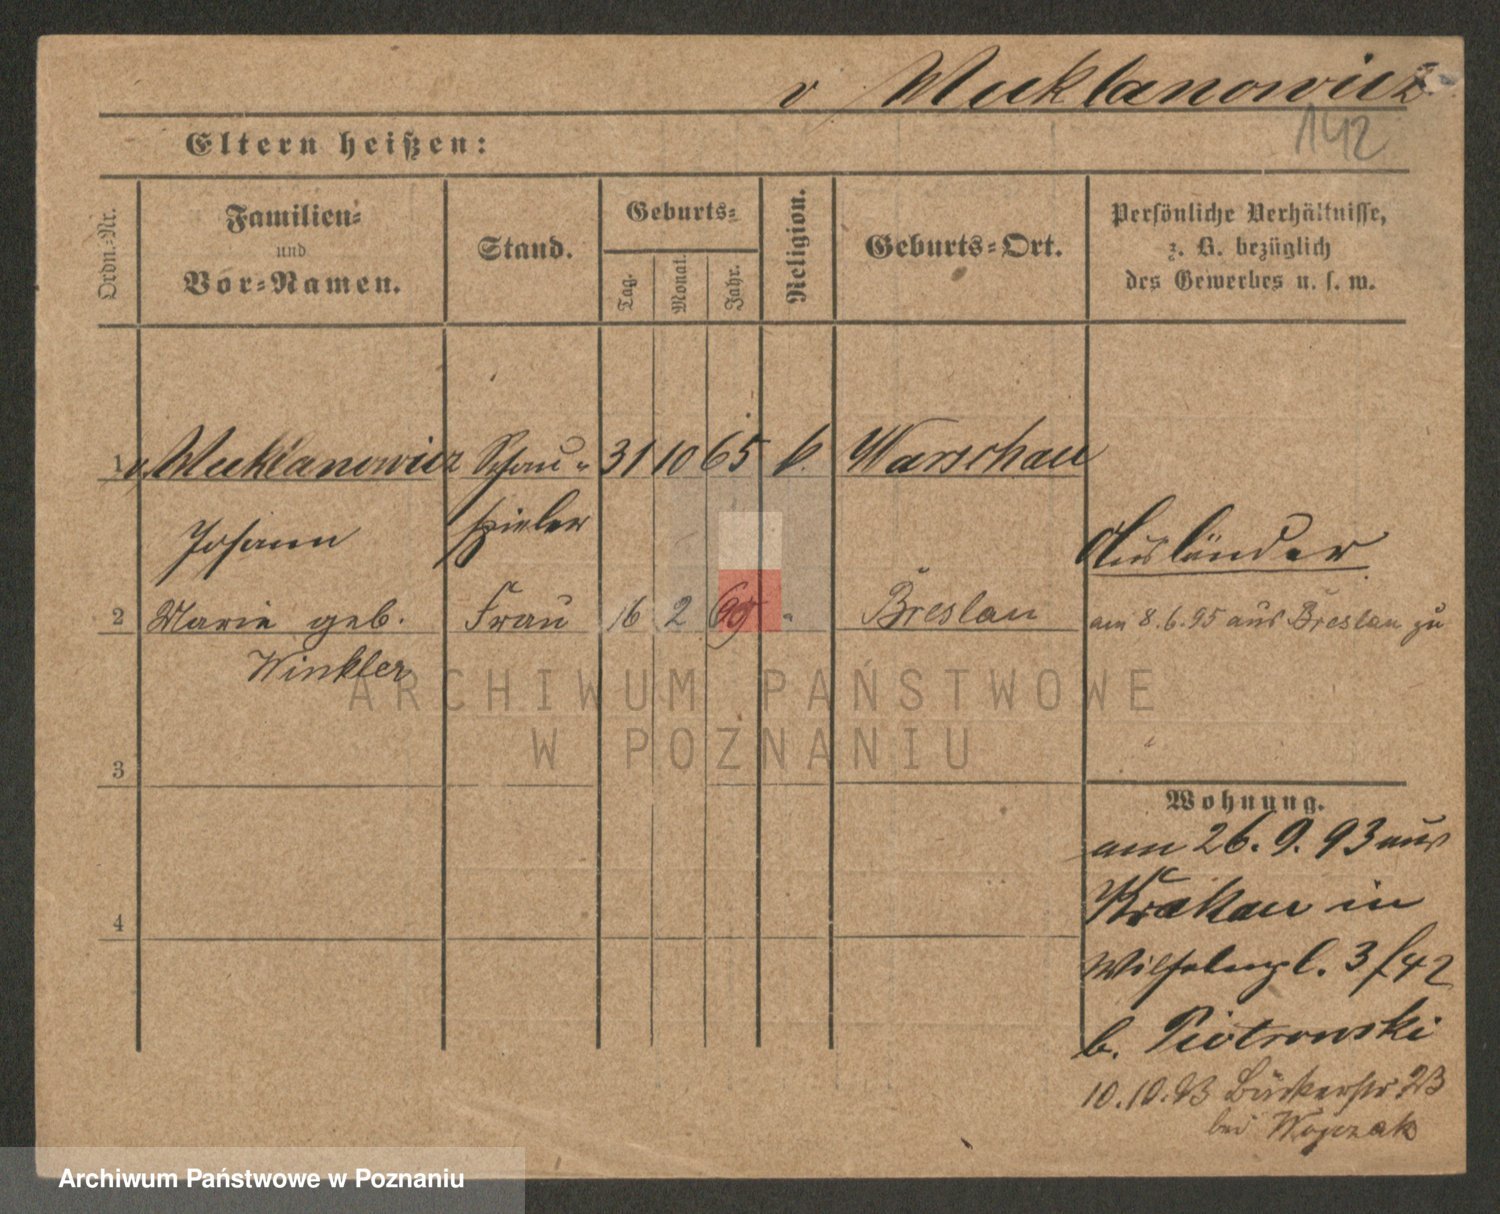 v Wuklanowicz
142
Eltern heißen:
Ordn.-Nr.
Familien-
und
Vor-Namen.
Stand.
Geburts-
Tag.
Monat.
Jahr.
Religion.
Geburts-Ort.
Persönliche Verhältnisse,
z. B. bezüglich
des Gewerbes u. s. w.
1 v Wuklanowicz Schau- 31 10 65 k. Warschau
Johann spieler
Ausländer
2 Marie geb. Frau 16 2 69 " Breslau am 8.6.95 aus Breslau zu
Winkler
ARCHIWUM PAŃSTWOWE
W POZNANIU
3
Wohnung.
am 26.9.93 aus
Krakau in
4
Wilhelmpl. 3/42
b. Piotrowski
10.10.93 Bäckerstr 23
bei Wojczak
Archiwum Państwowe w Poznaniu